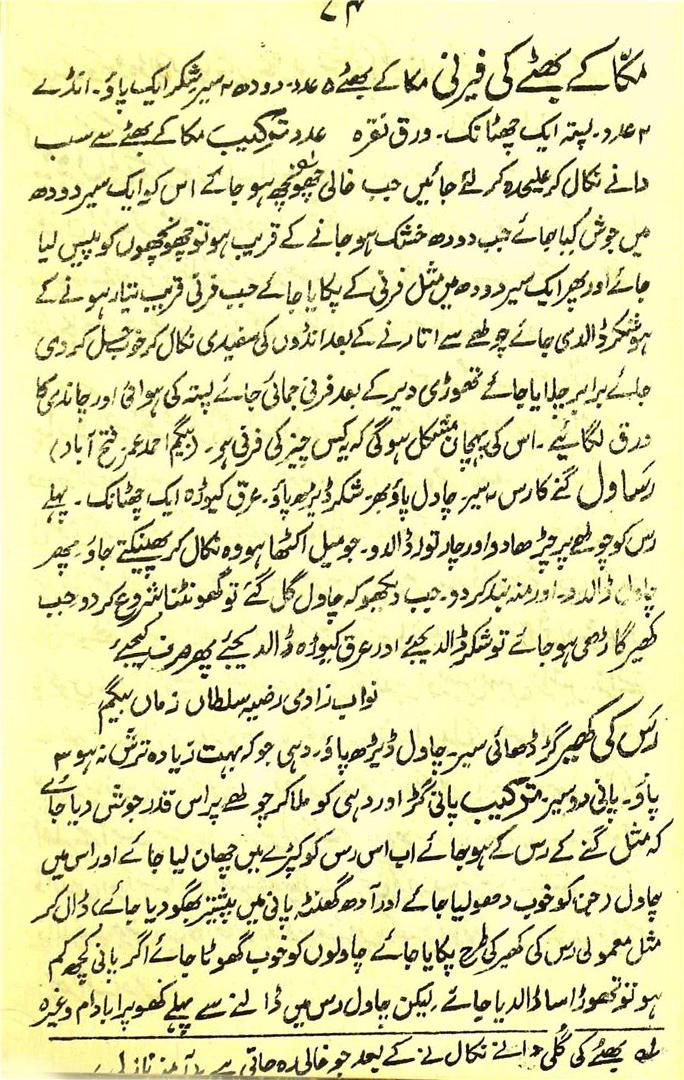 ۷۴
مکّا کے بھٹے کی فیرنی مکا کے بھٹے ۵ عدد۔ دودھ ۲ سیر شکر ایک پاؤ۔ انڈے
۲ عدد۔ پستہ ایک چھٹانک۔ ورق نقرہ عدد ترکیب مکا کے بھٹے سے سب
دانے نکال کر علیحدہ کر لئے جائیں جب خالی چھونچھ ہو جائے اس کو ایک سیر دودھ
میں جوش کیا جائے جب دودھ خشک ہو جانے کے قریب ہو تو چھونچھوں کو پیس لیا
جائے اور پھر ایک سیر دودھ میں مثل فرنی کے پکایا جائے جب فرنی قریب تیار ہونے کے
ہو شکر ڈالدی جائے چولھے سے اتارنے کے بعد انڈوں کی سفیدی نکال کر خوب حل کر دی
جائے برابر چلایا جائے تھوڑی دیر کے بعد فرنی جمائی جائے پستہ کی ہوائی اور چاندی کا
ورق لگائیے ۔ اس کی پہچان مشکل ہوگی کہ یہ کس چیز کی فرنی ہے۔ (بیگم احمد عمر فتح آباد)
رساول گنے کا رس ۴ سیر۔ چاول پاؤ بھر۔ شکر ڈیڑھ پاؤ۔ عرق کیوڑہ ایک چھٹانک ۔ پہلے
رس کو چولھے پر چڑھا دو اور چار تولہ ڈالدو۔ جو میل اکٹھا ہو وہ نکال کر پھینکتے جاؤ۔ پھر
چاول ڈالدو۔ اور منہ بند کر دو۔ جب دیکھو کہ چاول گل گئے تو گھونٹنا شروع کر دو جب
کھیر گاڑھی ہو جائے تو شکر ڈالدیجئے اور عرق کیوڑہ ڈالدیجئے پھر صرف کیجئے
نواب زادی رضیہ سلطاں زماں بیگم
رس کی کھیر گڑ ڈھائی سیر۔ چاول ڈیڑھ پاؤ۔ دہی جو کہ بہت زیادہ ترش نہ ہو ۳
پاؤ۔ پانی دو سیر۔ ترکیب پانی گڑ اور دہی کو ملا کر چولھے پر اس قدر جوش دیا جائے
کہ مثل گنے کے رس کے ہو جائے اب اس رس کو کپڑے میں چھان لیا جائے اور اس میں
چاول (جن کو خوب دھو لیا جائے اور آدھ گھنٹہ پانی میں پیشتر بھگو دیا جائے) ڈال کر
مثل معمولی رس کی کھیر کی طرح پکایا جائے چاولوں کو خوب گھوٹا جائے اگر پانی کچھ کم
ہو تو تھوڑا سا ڈالدیا جائے ۔ لیکن چاول رس میں ڈالنے سے پہلے کھوپرا بادام وغیرہ
لہ بھٹے کی گُلی دانے نکالنے کے بعد جو خالی رہ جاتی ہے